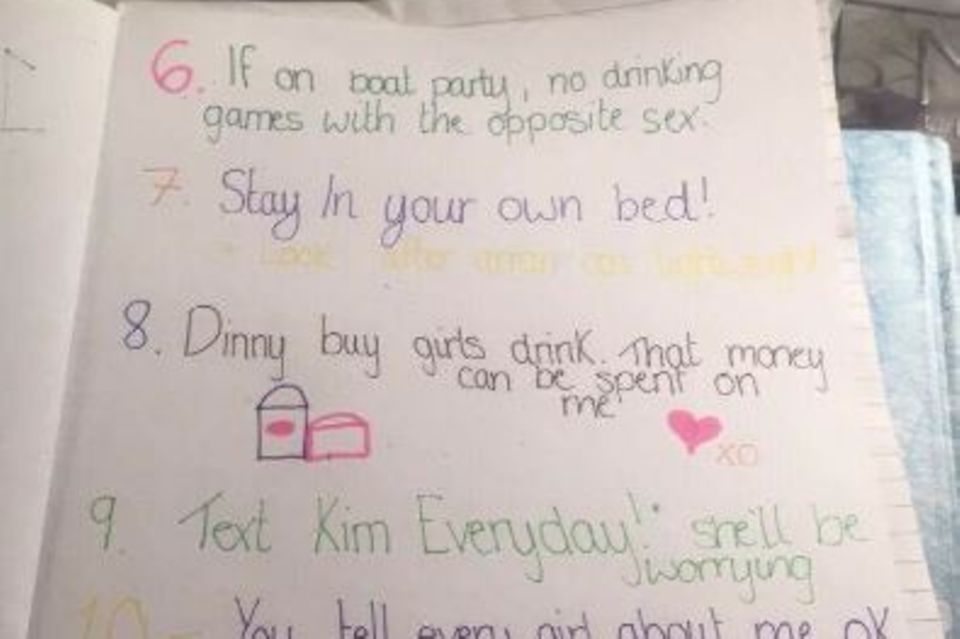 6. If on boat party, no drinking
games with the opposite sex.
7. Stay In your own bed!
8. Dinny buy girls drink. That money
can be spent on
me
xo
9. Text Kim Everyday! she'll be
worrying
10 - You tell every girl about me ok